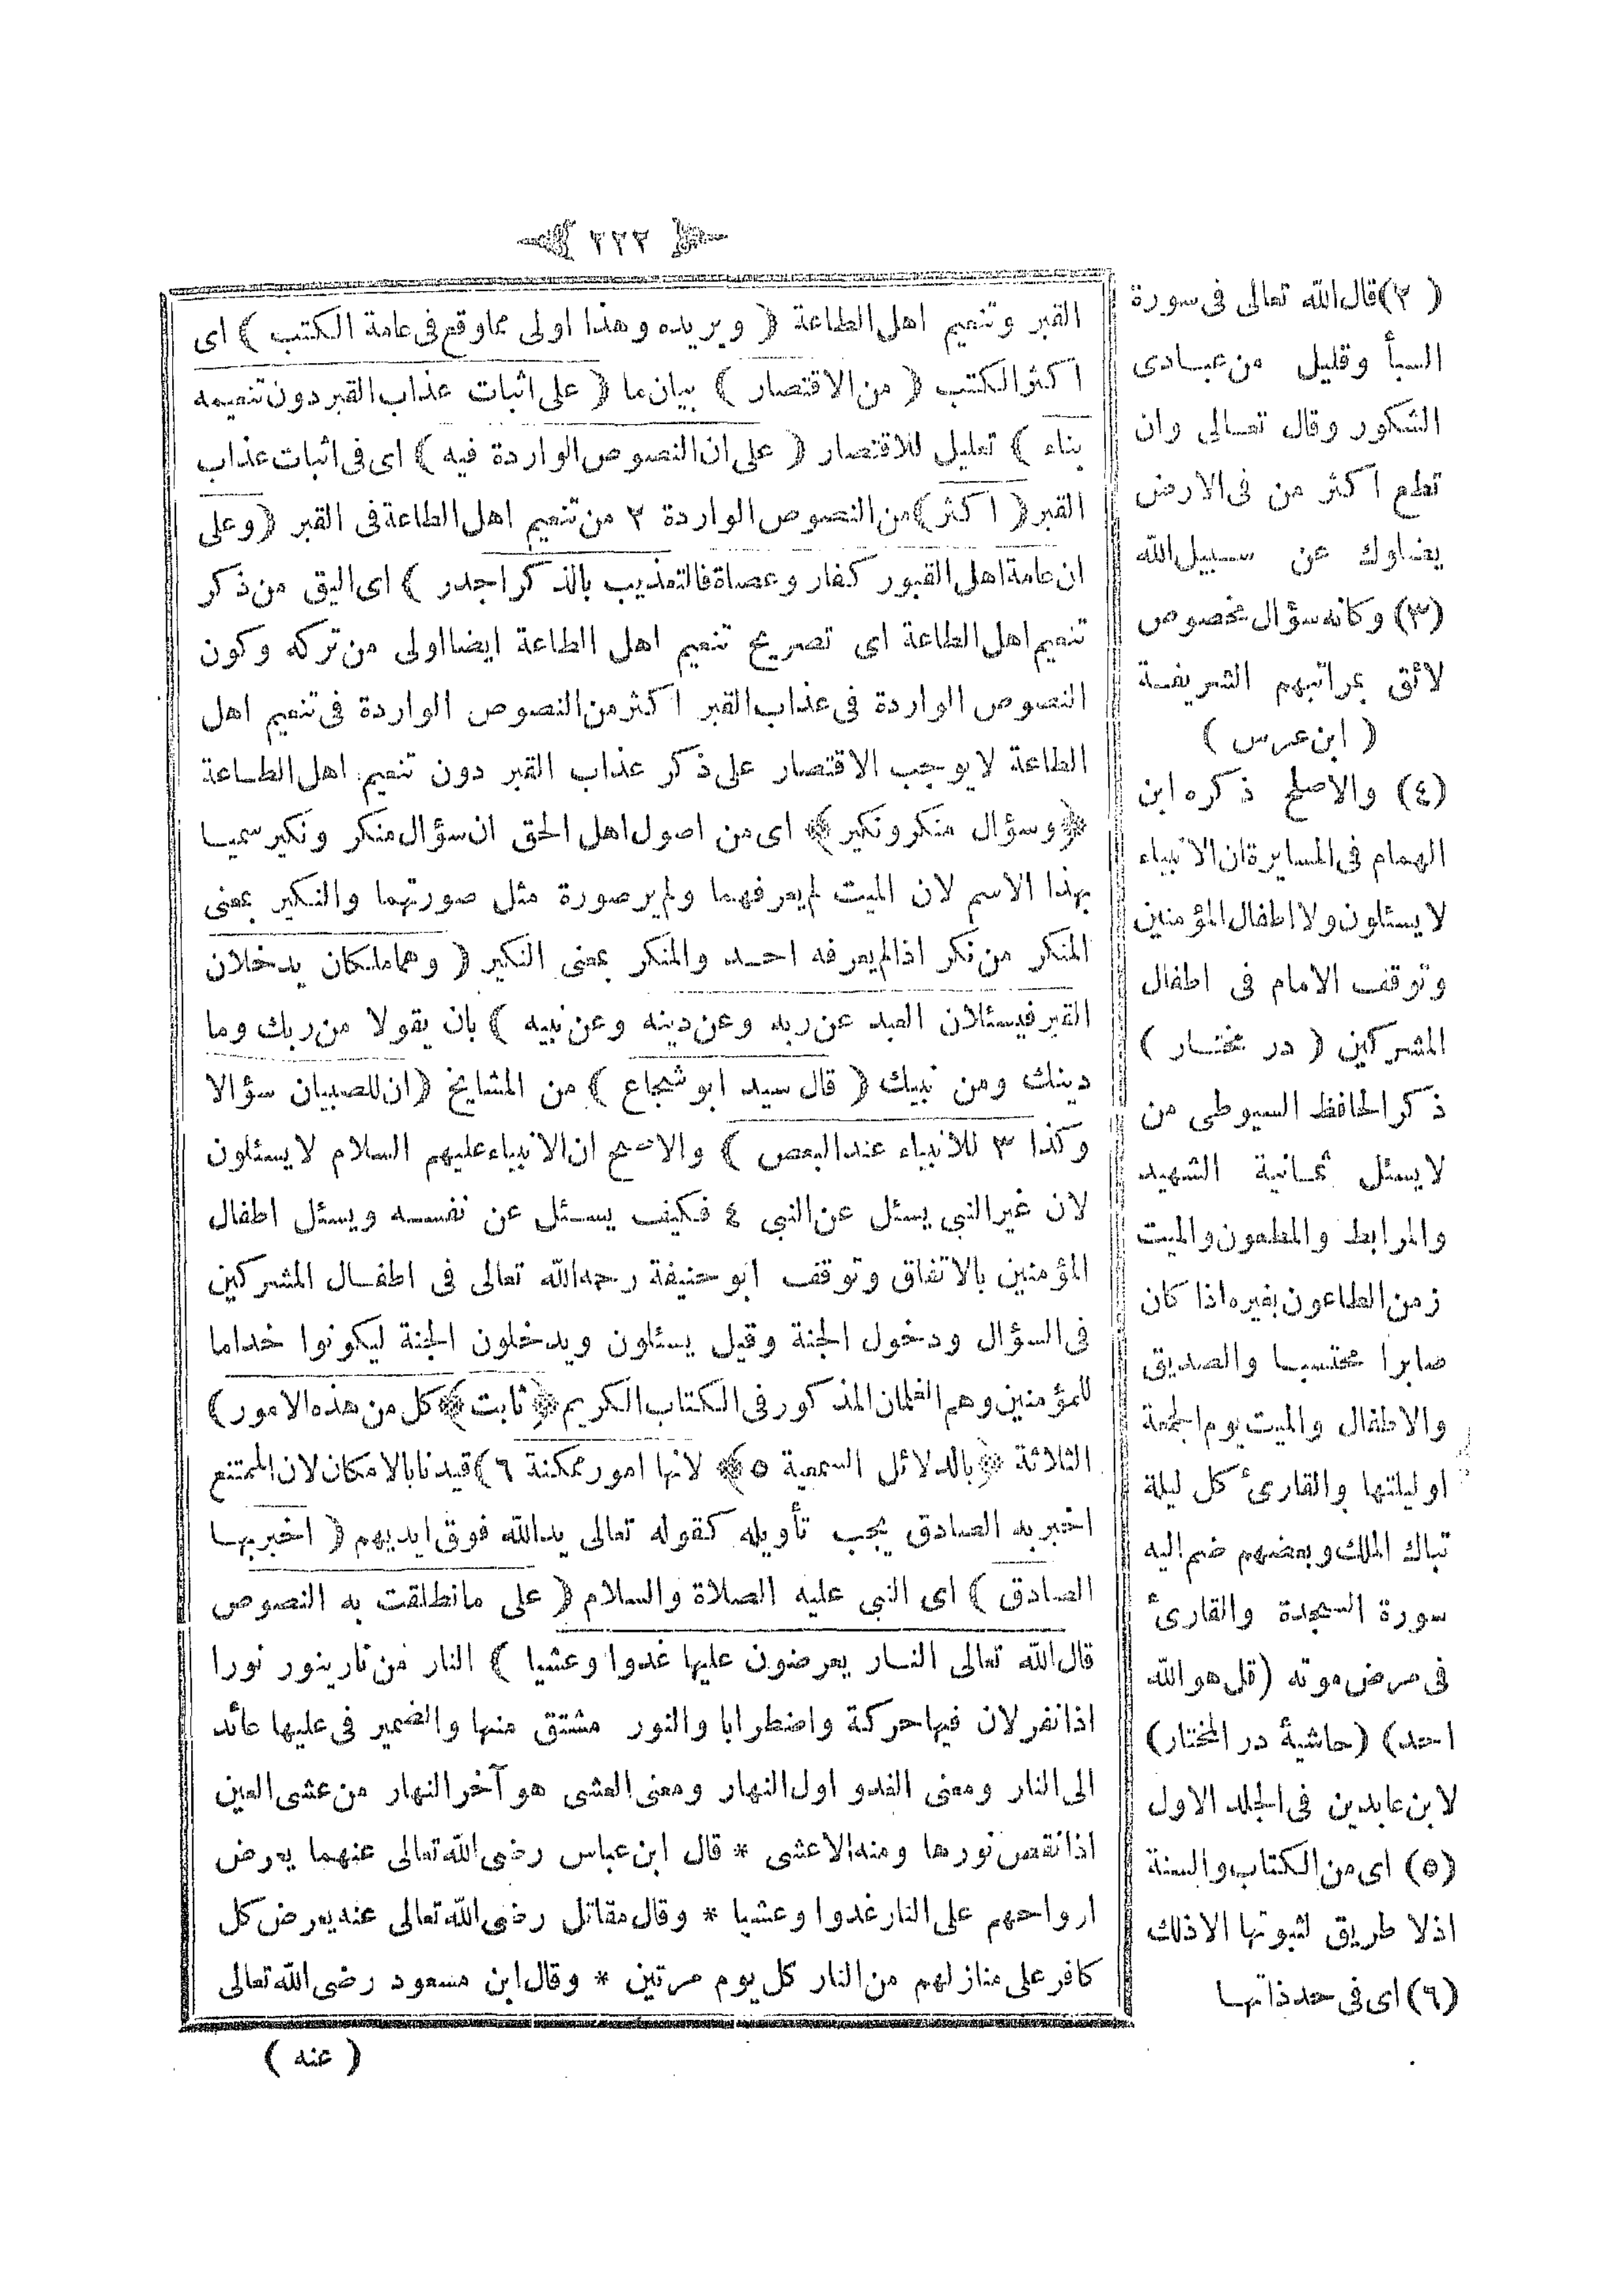 ٢٢٢
القبر وتنعيم اهل الطاعة ( ويريده وهذا اولى مما وقع فى عامة الكتب ) اى
اكثر الكتب ( من الاقتصار ) بيان ما ( على اثبات عذاب القبر دون تنعيمه
بناء ) تعليل للاقتصار ( على ان النصوص الواردة فيه ) اى فى اثبات عذاب
القبر ( اكثر ) من النصوص الواردة ٢ من تنعيم اهل الطاعة فى القبر ( وعلى
ان عامة اهل القبور كفار وعصاة فالتعذيب بالذكر اجدر ) اى اليق من ذكر
تنعيم اهل الطاعة اى تصريح تنعيم اهل الطاعة ايضا اولى من تركه وكون
النصوص الواردة فى عذاب القبر اكثر من النصوص الواردة فى تنعيم اهل
الطاعة لا يوجب الاقتصار على ذكر عذاب القبر دون تنعيم اهل الطاعة
﴿ وسؤال منكر ونكير ﴾ اى من اصول اهل الحق ان سؤال منكر ونكير سميا
بهذا الاسم لان الميت لم يعرفهما ولم ير صورة مثل صورتهما والنكير بمعنى
المنكر من نكر اذا لم يعرفه احد والمنكر بمعنى النكير ( وهما ملكان يدخلان
القبر فيسئلان العبد عن ربه وعن دينه وعن نبيه ) بان يقولا من ربك وما
دينك ومن نبيك ( قال سيد ابو شجاع ) من المشايخ ( ان للصبيان سؤالا
وكذا ٣ للانبياء عند البعض ) والاصح ان الانبياء عليهم السلام لا يسئلون
لان غير النبي يسئل عن النبى ٤ فكيف يسئل عن نفسه ويسئل اطفال
المؤمنين بالاتفاق وتوقف ابو حنيفة رحمه الله تعالى فى اطفال المشركين
فى السؤال ودخول الجنة وقيل يسئلون ويدخلون الجنة ليكونوا خداما
للمؤمنين وهم الغلمان المذكور فى الكتاب الكريم ﴿ ثابت ﴾ كل من هذه الامور )
الثلاثة ﴿ بالدلائل السمعية ٥ ﴾ لانها امور ممكنة ٦ ) قيدنا بالامكان لان الممتنع
اخبر به الصادق يجب تأويله كقوله تعالى يد الله فوق ايديهم ( اخبر بها
الصادق ) اى النبى عليه الصلاة والسلام ( على ما نطلقت به النصوص
قال الله تعالى النار يعرضون عليها غدوا وعشيا ) النار من نار ينور نورا
اذا نفر لان فيها حركة واضطرابا والنور مشتق منها والضمير فى عليها عائد
الى النار ومعنى الغدو اول النهار ومعنى العشى هو آخر النهار من عشى العين
اذا نقص نورها ومنه الاعشى * قال ابن عباس رضى الله تعالى عنهما يعرض
ارواحهم على النار غدوا وعشيا * وقال مقاتل رضى الله تعالى عنه يعرض كل
كافر على منازلهم من النار كل يوم مرتين * وقال ابن مسعود رضى الله تعالى
( عنه )
(٢) قال الله تعالى فى سورة
السبأ وقليل من عبادى
الشكور وقال تعالى وان
تطع اكثر من فى الارض
يضلوك عن سبيل الله
(٣) وكانه سؤال مخصوص
لائق بمراتبهم الشريفة
( ابن عرس )
(٤) والاصح ذكره ابن
الهمام فى المسايرة ان الانبياء
لا يسئلون ولا اطفال المؤمنين
وتوقف الامام فى اطفال
المشركين ( در مختار )
ذكر الحافظ السيوطى من
لا يسئل ثمانية الشهيد
والمرابط والمطعون والميت
زمن الطاعون بغيره اذا كان
صابرا محتسبا والصديق
والاطفال والميت يوم الجمعة
او ليلتها والقارئ كل ليلة
تباك الملك وبعضهم ضم اليه
سورة السجدة والقارئ
فى مرض موته (قل هو الله
احد) (حاشية در المختار)
لابن عابدين فى الجلد الاول
(٥) اى من الكتاب والسنة
اذ لا طريق لثبوتها الا ذلك
(٦) اى فى حد ذاتها